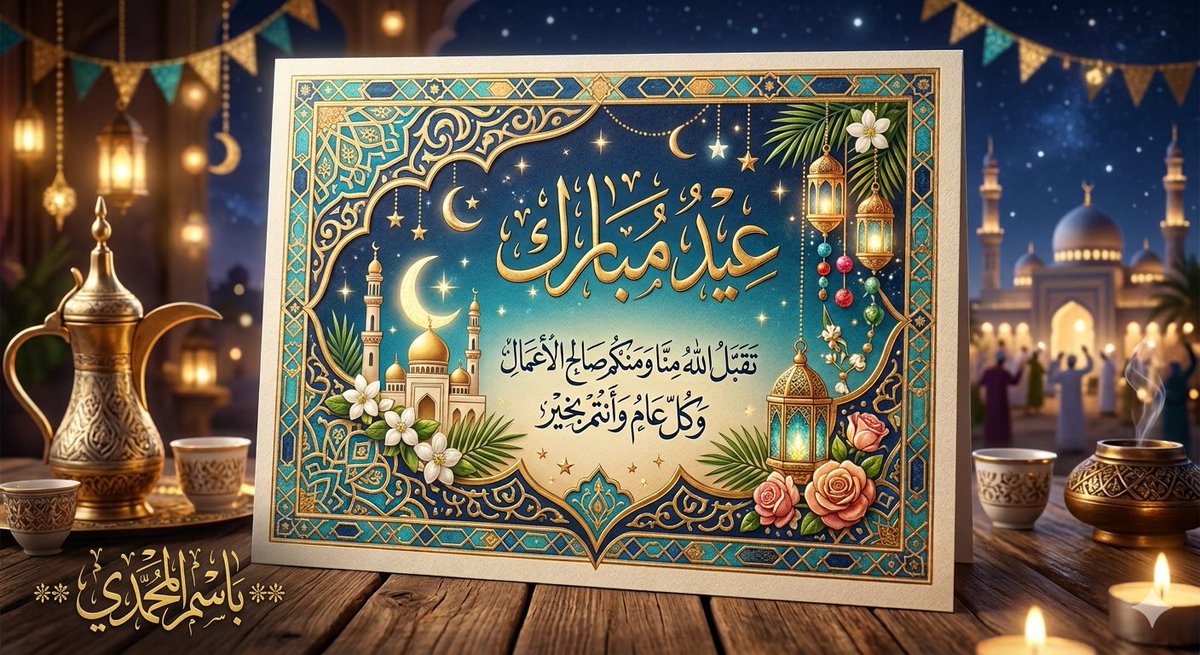 عِيْدُ مُبَارَك
تَقَبَّلُ اللهُ مِنَّا وَمِنْكُمْ صَالِحَ الأَعْمَالِ
وَكُلّ عَامُ وَأَنْتُمْ بِخَيْر
بَاسْم المُحَمَّدي